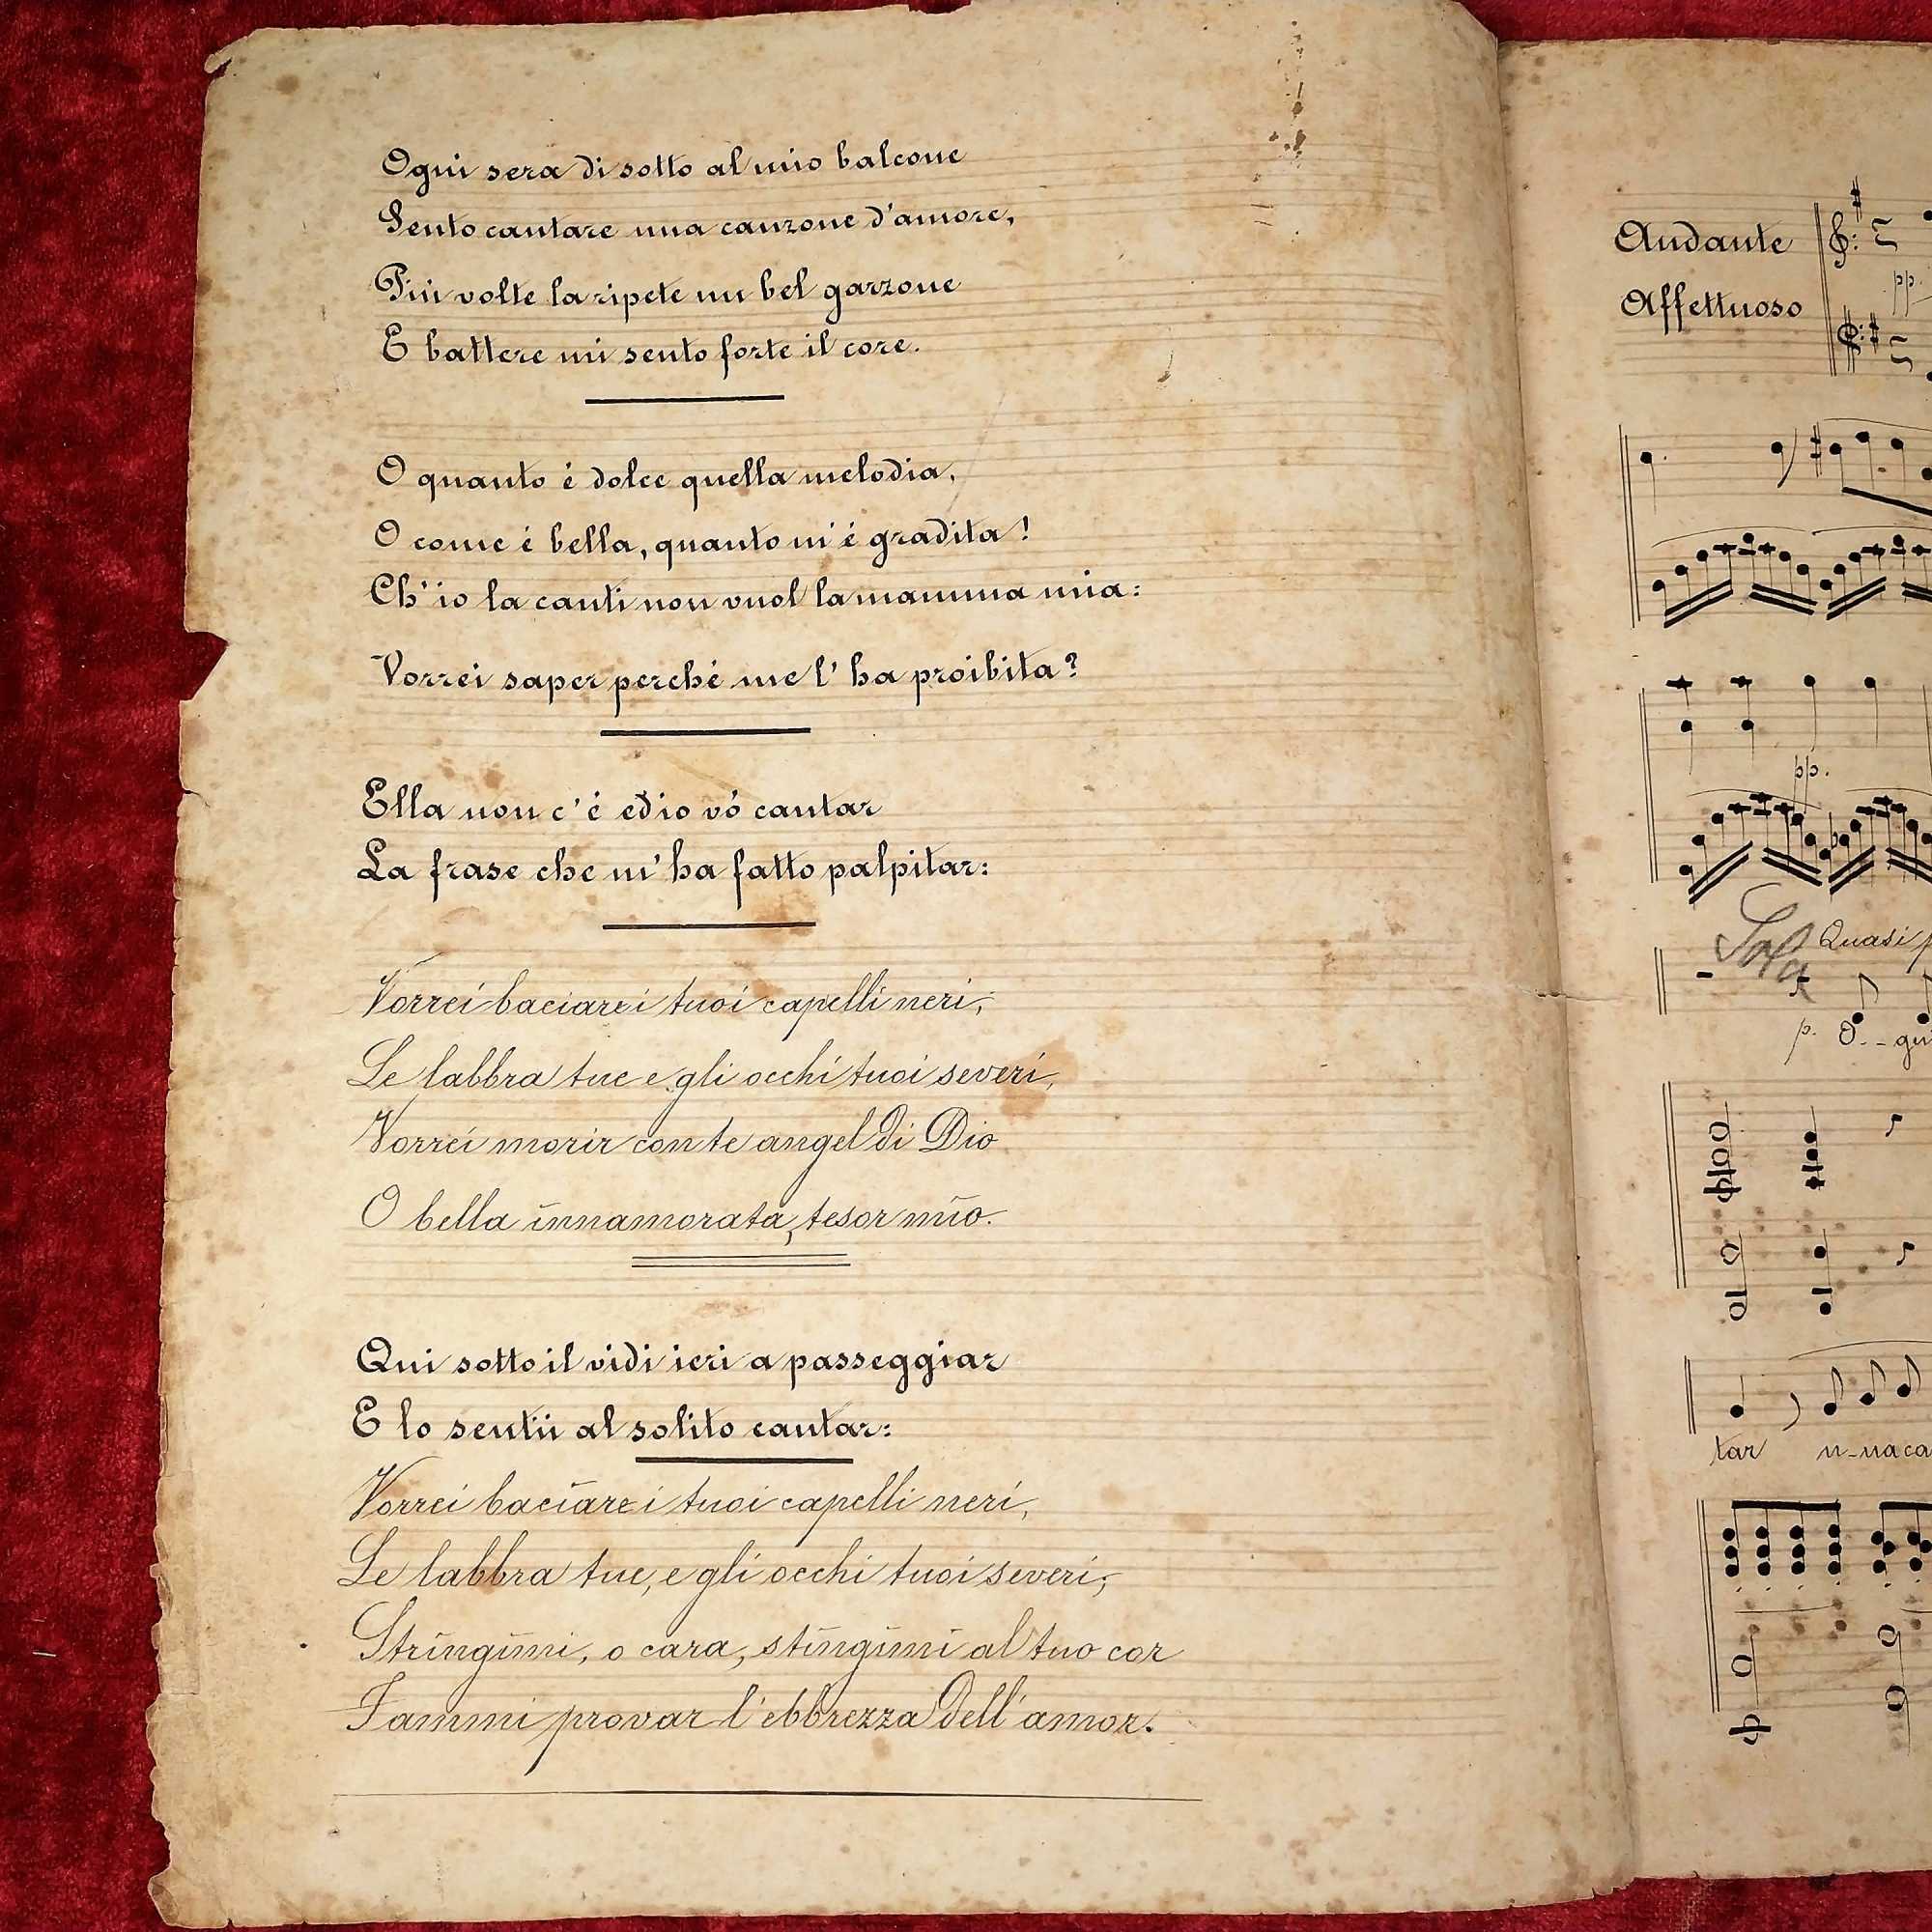 Ogni sera di sotto al mio balcone
Sento cantare una canzone d'amore,
Più volte la ripete un bel garzone
E battere mi sento forte il core.
O quanto é dolce quella melodia,
O come é bella, quanto m'é gradita!
Ch'io la canti non vuol la mamma mia:
Vorrei saper perché me l'ha proibita?
Ella non c'é ed io vó cantar
La frase che m'ha fatto palpitar:
Vorrei baciare i tuoi capelli neri,
Le labbra tue e gli occhi tuoi severi,
Vorrei morir con te angel di Dio
O bella innamorata, tesor mio.
Qui sotto il vidi ieri a passeggiar
E lo sentii al solito cantar:
Vorrei baciare i tuoi capelli neri,
Le labbra tue, e gli occhi tuoi severi;
Stringimi, o cara, stingimi al tuo cor
Fammi provar l'ebbrezza dell'amor.
Andante
Affettuoso
pp.
pp.
Sola
Quasi
p. O-gni
tar u-na ca